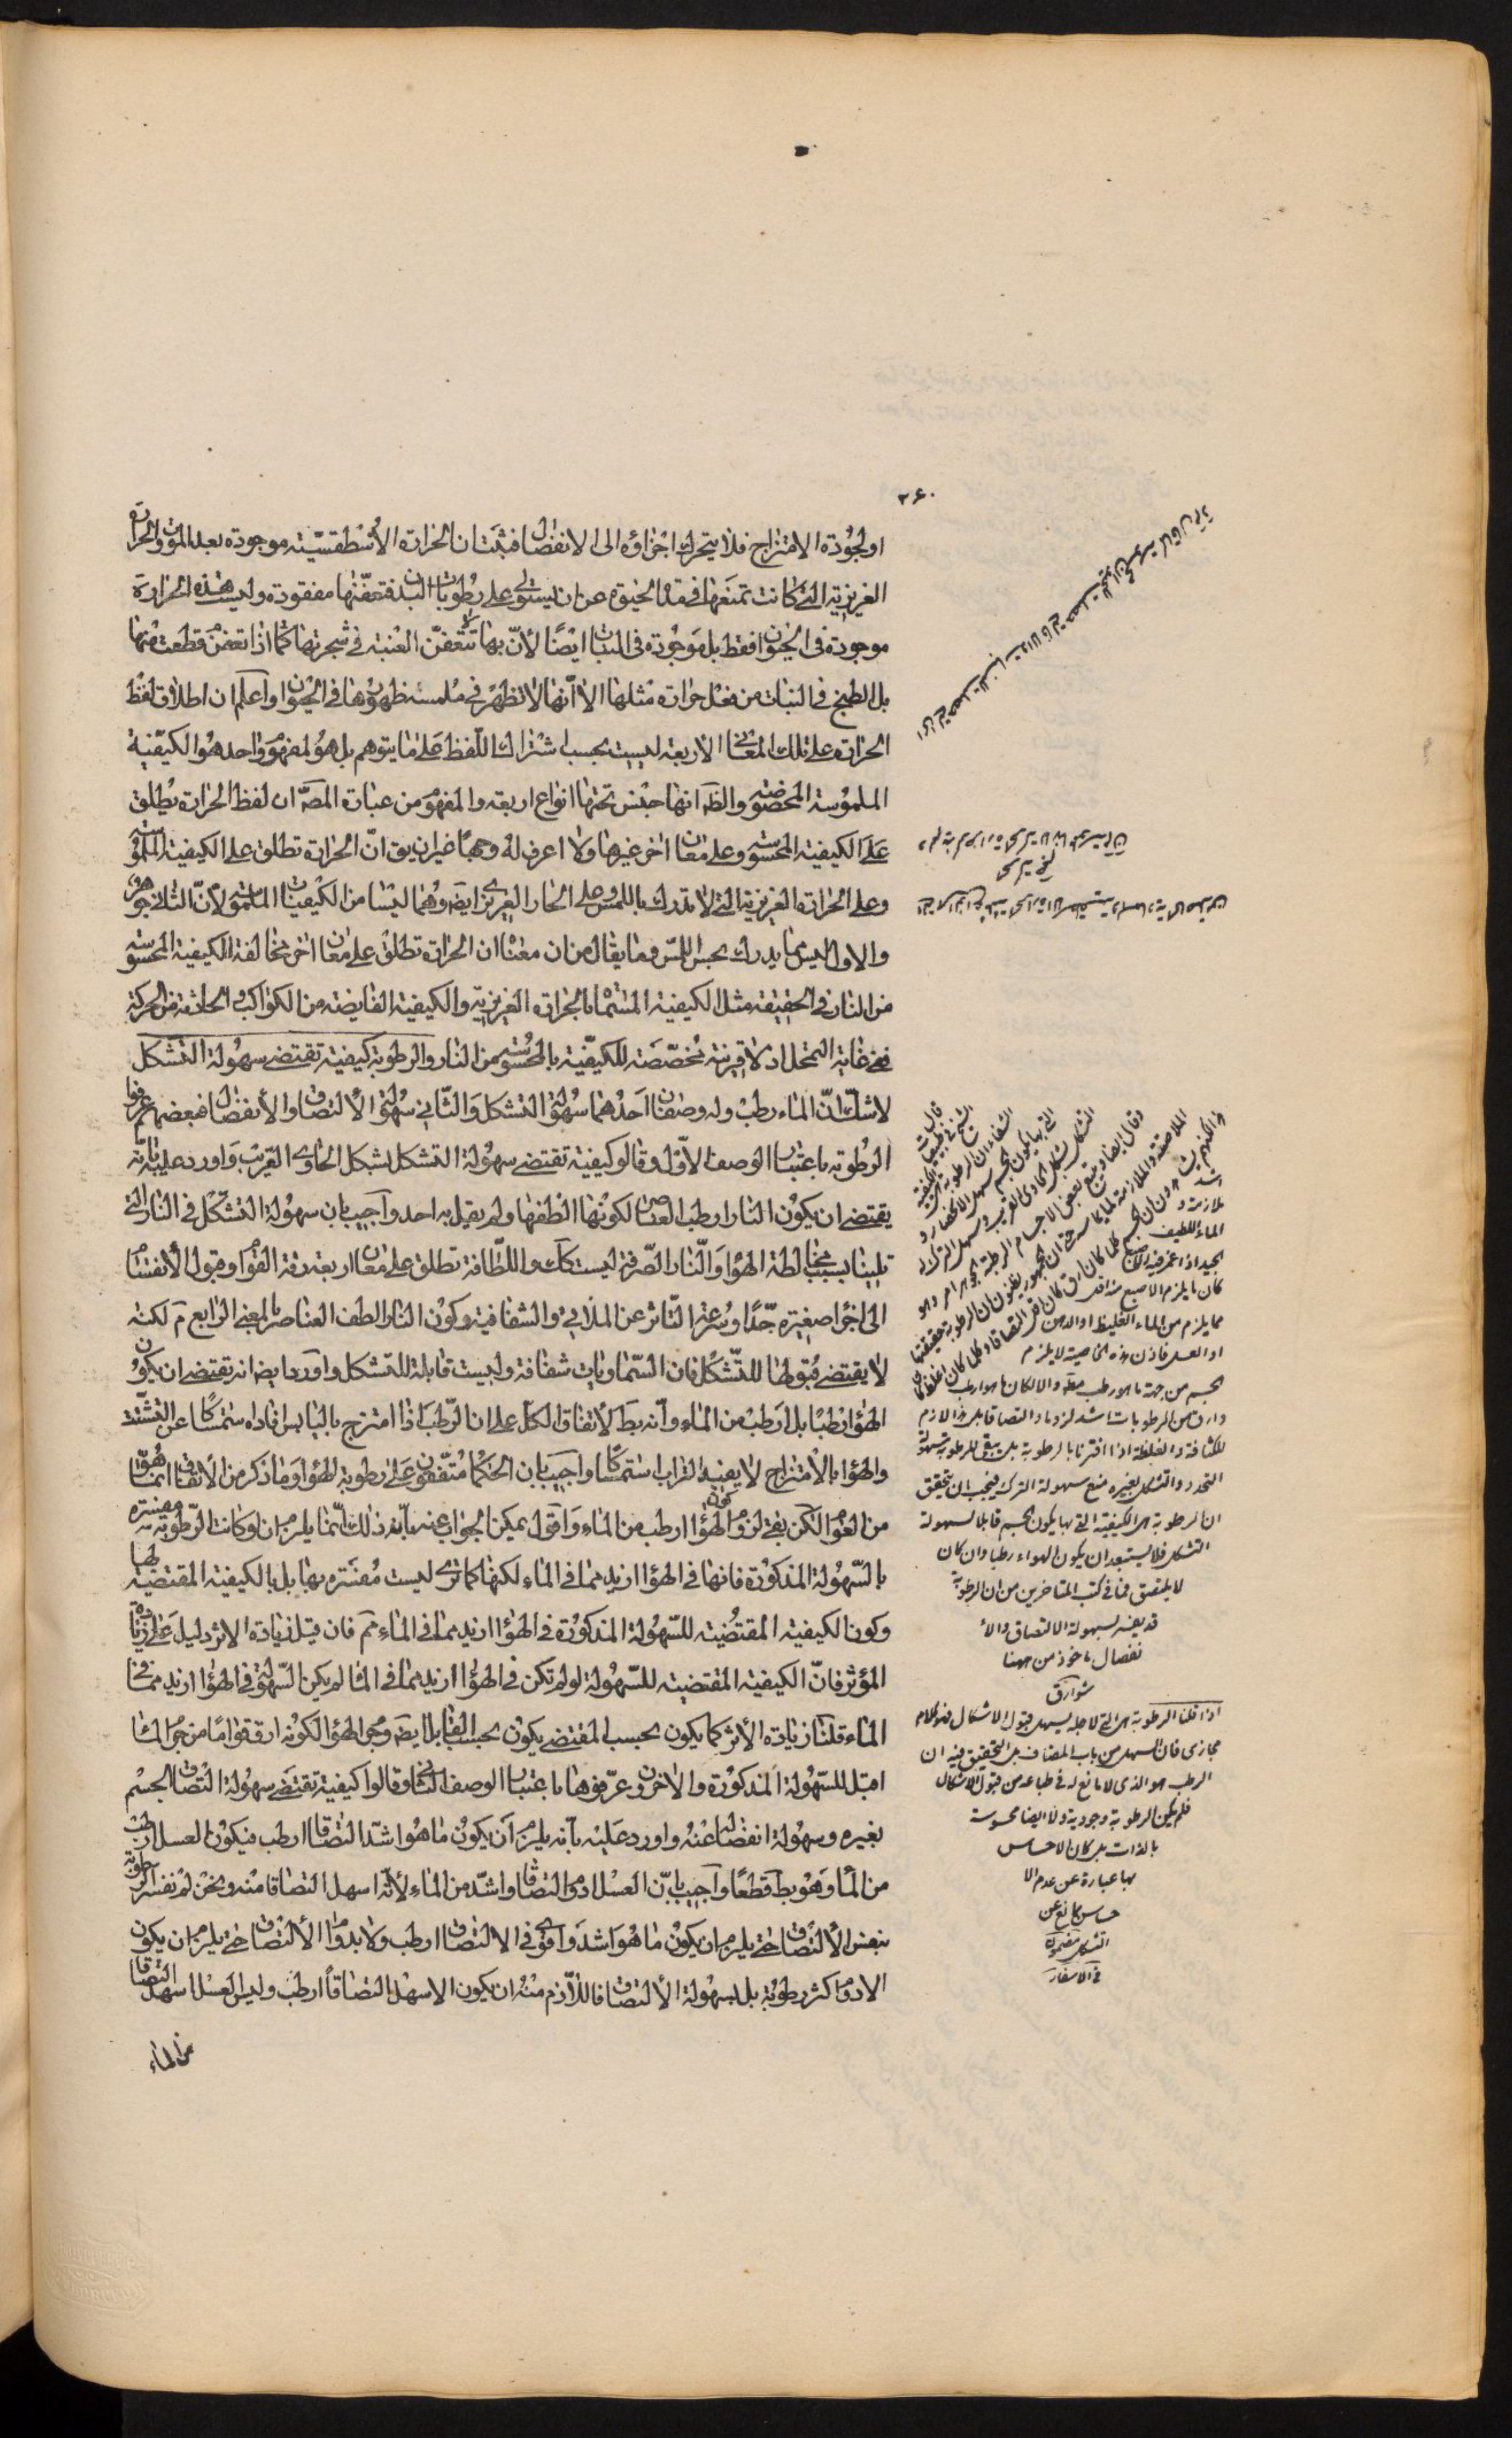 ۲۶۰
او لجودة الامتزاج فلا يتحرك اجزاؤه الى الانفصال فثبت ان الحرارة الأسطقسية موجودة بعد الموت والحرارة
الغريزية التى كانت تمنعها فى مدة الحيوة عن ان يستولى على رطوبات البدن فتعفنها مفقودة وليست هذه الحرارة
موجودة فى الحيوان فقط بل موجودة فى النبات ايضًا لأنّ بها لا تتعفن العنبة فى شجرتها كما اذا تعفن قطعت منها
بل الطبخ فى النبات من فعل حرارة مثلها الا أنها لا تظهر فى ملمسه ظهورها فى الحيوان واعلم ان اطلاق لفظ
الحرارة على تلك المعانى الاربعة ليست بحسب اشتراك اللفظ على ما يتوهم بل هو لمفهوم واحد هو الكيفية
الملموسة المخصوصة والظ انها جنس تحتها انواع اربعة والمفهوم من عبارة المصّ ان لفظ الحرارة يطلق
على الكيفية المحسوسة وعلى معان اخر غيرها ولا اعرف له وجهًا غير ان يق انّ الحرارة تطلق على الكيفية الملموسة
وعلى الحرارة الغريزية التى لا تدرك باللمس وعلى الحار الغريزى ايضا وهما ليسا من الكيفيات الملموسة لأنّ الثانى جوهر
والاول ليس مما يدرك بحس اللمس وما يقال من ان معناه ان الحرارة تطلق على معان اخر مخالفة الكيفية المحسوسة
من النار فى الحقيقة مثل الكيفية المسماة بالحرارة الغريزية والكيفية الفايضة من الكواكب والحادثة من الحركة
فى غاية التمحل اذ لا قرينة مخصّصة للكيفية بالمحسوسة من النار والرطوبة كيفية تقتضى سهولة التشكل
لا شك انّ الماء رطب وله وصفان احدهما سهولة التشكل والثانى سهولة الالتصاق والانفصال فبعضهم عرفوا
الرطوبة باعتبار الوصف الأوّل وقالوا كيفية تقتضى سهولة التشكل بشكل الحاوى القريب واورد عليه بانه
يقتضى ان يكون النار ارطب العناصر لكونها الطفها ولم يقل به احد واجيب بان سهولة التشكل فى النار التى
تلينا بسبب مخالطة الهواء والنار الصّرفة ليست كك واللطافة تطلق على معان اربعة رقة القوام وقبول الأنقسام
الى اجزاء صغيرة جدًّا وسرعة التأثر عن الملاقى والشفافية وكون النار الطف العناصر بالمعنى الرابع مّ لكنه
لا يقتضى قبولها للتشكل فان السماويات شفافة وليست قابلة للتشكل واورد ايضا انه تقتضى ان يكون
الهواء رطبًا بل ارطب من الماء وانه بط لأتفاق الكل على ان الرطب اذا امتزج باليابس افاده استمساكًا عن التشتت
والهواء بالامتزاج لا يفيد التراب استمساكًا واجيب بان الحكماء متفقون على رطوبة الهواء وما ذكر من الأتفاق انما هو
من العوام لكن بقى لزوم كون الهواء ارطب من الماء واقول يمكن الجواب عنه بانه ذلك انّما يلزم ان لو كانت الرطوبة مفسّرة
بالسهولة المذكورة فانها فى الهواء ازيد مما فى الماء لكنها كما ترى ليست مفسّرة بها بل بالكيفية المقتضية لها
وكون الكيفية المقتضية للسهولة المذكورة فى الهواء ازيد مما فى الماء مّ فان قيل زيادة الاثر دليل على زيادة
المؤثر فانّ الكيفية المقتضية للسهولة لو لم تكن فى الهواء ازيد مما فى الماء لم يكن السهولة فى الهواء ازيد مما فى
الماء قلنا زيادة الأثر كما يكون بحسب المقتضى يكون بحسب القابل ايضا وجرم الهواء لكونه ارق قوامًا من جرم الماء
اقبل للسهولة المذكورة والاخرون عرّفوها باعتبار الوصف الثانى وقالوا كيفية تقتضى سهولة التصاق الجسم
بغيره وسهولة انفصاله عنه واورد عليه بأنه يلزم ان يكون ما هو اشدّ التصاقا ارطب فيكون العسل ارطب
من الماء وهو بط قطعًا واجيب بانّ العسل ادوم التصاقا واشدّ من الماء لا أنّه اسهل التصاقا منه ونحن لم نفسر الرطوبة
بنفس الألتصاق حتى يلزم ان يكون ما هو اشدّ واقوى فى الالتصاق ارطب ولا بدوام الألتصاق حتى يلزم ان يكون
الادوم اكثر رطوبة بل بسهولة الألتصاق فاللازم منه ان يكون الاسهل التصاقاً ارطب وليس العسل اسهل التصاقا
من الماء
الماء اللطيف
الجيد اذا غمر فيه الاصبع
كان ما يلزم الاصبع منه اقل
مما يلزم من الماء الغليظ او الدهن
او العسل فاذن هذه الخاصية لا يلزم
الجسم من جهة ما هو رطب مطلقا والا لكان ما هو ارطب
وارق من الرطوبات اشد لزوما والتصاقا بل هذا لازم
للكثافة والغلظة اذا اقترنا بالرطوبة بل يبقى للرطوبة سهولة
التحدد والتشكل بغيره مع سهولة الترك فيجب ان يتحقق
ان الرطوبة هى الكيفية التى بها يكون الجسم قابلا لسهولة
التشكل فلا يستبعد ان يكون الهواء رطبا وان كان
لا يلتصق فما فى كتب المتاخرين من ان الرطوبة
قد يفسر بسهولة الالتصاق والا
نفصال ماخوذ من ههنا
شوارق
اذا قلنا الرطوبة هى التى لاجلها يسهل قبول الاشكال فهو كلام
مجازى فان السهل من باب المضاف بل التحقيق فيه ان
الرطب هو الذى لا مانع له فى طباعه من قبول الاشكال
فلم يكن الرطوبة وجودية ولا ايضا محسوسة
بالذات بل كان الاحساس
بها عبارة عن عدم الا
حساس بمانع عن
التشكل
فى الاسفار